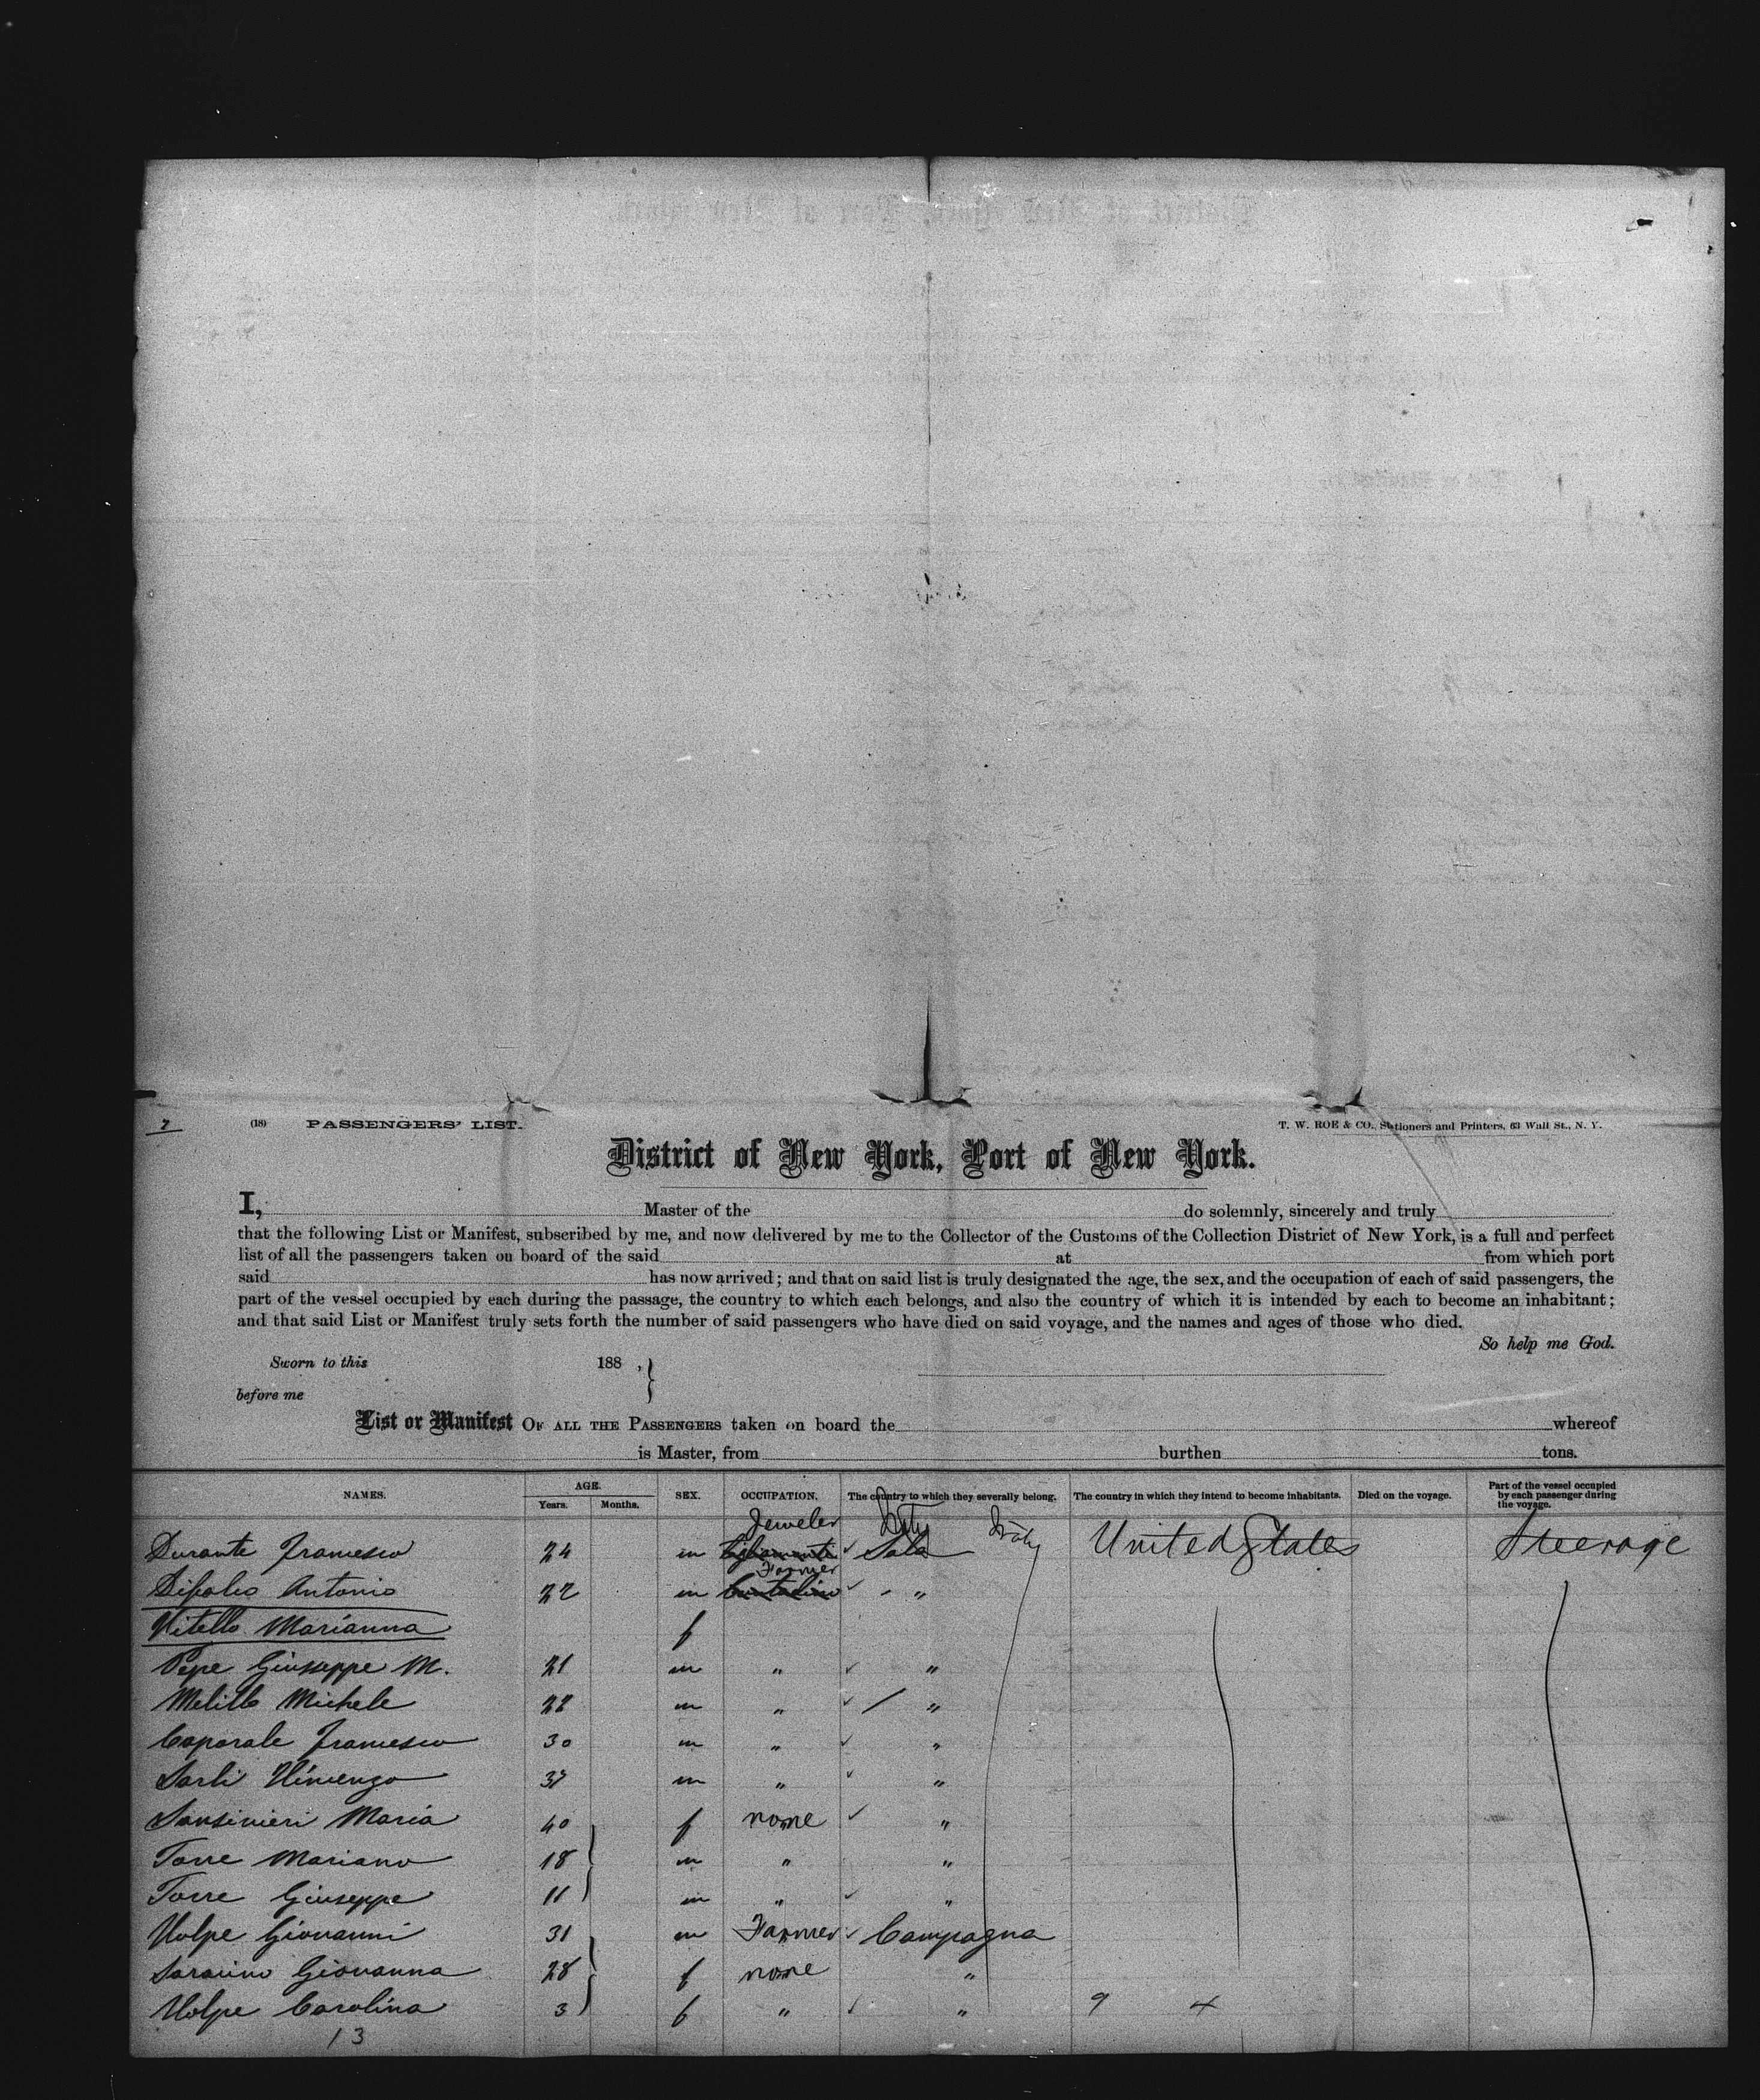 7
(18) PASSENGERS' LIST. T. W. ROE & CO., Stationers and Printers, 63 Wall St., N. Y.
District of New York, Port of New York.
I, Master of the do solemnly, sincerely and truly
that the following List or Manifest, subscribed by me, and now delivered by me to the Collector of the Customs of the Collection District of New York, is a full and perfect
list of all the passengers taken on board of the said at from which port
said has now arrived; and that on said list is truly designated the age, the sex, and the occupation of each of said passengers, the
part of the vessel occupied by each during the passage, the country to which each belongs, and also the country of which it is intended by each to become an inhabitant;
and that said List or Manifest truly sets forth the number of said passengers who have died on said voyage, and the names and ages of those who died.
So help me God.
Sworn to this 188 ,
before me
List or Manifest OF ALL THE PASSENGERS taken on board the whereof
is Master, from burthen tons.
NAMES. AGE. Years. Months. SEX. OCCUPATION. The country to which they severally belong. The country in which they intend to become inhabitants. Died on the voyage. Part of the vessel occupied by each passenger during the voyage.
Jeweler Italy
Durante Francesco 24 m Sala United States Steerage
Farmer
Antonio 22 m Contadino "
Vitello Marianna f
Pepe Giuseppe M. 21 m " "
Melillo Michele 22 m " "
Caporale Francesco 30 m " "
Sarli Vincenzo 37 m " "
Maria 40 f none "
Torre Mariano 18 m " "
Torre Giuseppe 11 m " "
Volpe Giovanni 31 m Farmer Campagna
Saracino Giovanna 28 f none "
Volpe Carolina 3 f " " 9 x
13